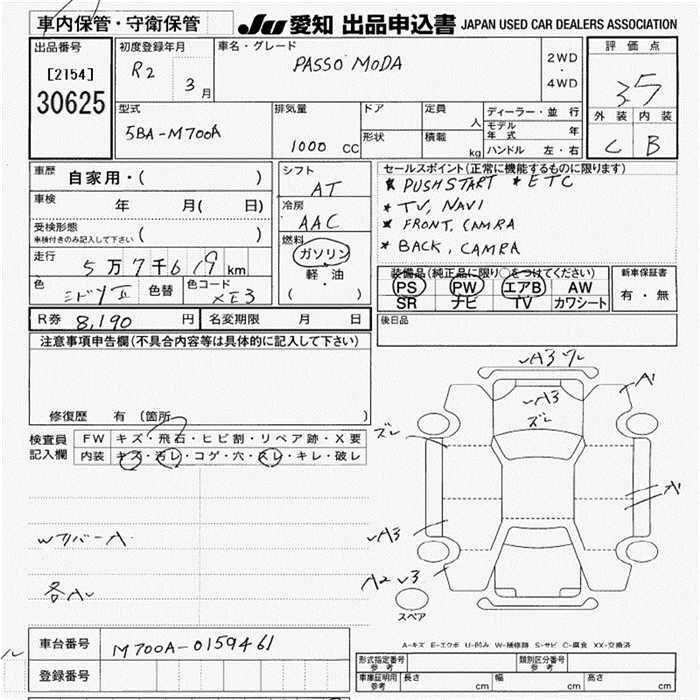 車内保管・守衛保管
JU 愛知 出品申込書 JAPAN USED CAR DEALERS ASSOCIATION
出品番号
[2154]
30625
初度登録年月
R2 3月
車名・グレード
PASSO MODA
2WD
・
4WD
評価点
3.5
外装 内装
C B
型式
5BA-M700A
排気量
1000 CC
ドア
形状
定員
人
積載
kg
ディーラー・並行
モデル年式 年
ハンドル 左・右
車歴 自家用・( )
車検 年 月( 日)
受検形態
車検付きのみ記入して下さい ( )
走行 5万7千619km
色 色替 色コード
XE3
シフト
AT
冷房
AAC
燃料
ガソリン
軽・油
( )
セールスポイント(正常に機能するものに限ります)
* PUSH START * ETC
* TV, NAVI
* FRONT, CAMRA
* BACK, CAMRA
装備品(純正品に限り○をつけてください)
PS PW エアB AW
SR ナビ TV カワシート
新車保証書
有・無
R券 8,190 円 名変期限 月 日
後日品
注意事項申告欄(不具合内容等は具体的に記入して下さい)
修復歴 有 (箇所 )
検査員記入欄
FW キズ・飛石・ヒビ割・リペア跡・X要
内装 キズ・汚レ・コゲ・穴・スレ・キレ・破レ
A3
A1
A3
ズレ
ズレ
A
A3
A2
スペア
A-キズ E-エクボ U-凹み W-補修跡 S-サビ C-腐食 XX-交換済
車台番号 M700A-0159461
登録番号
形式指定番号
参考
類別区分番号
参考
車庫証明用
参考
長さ cm 幅 cm 高さ cm